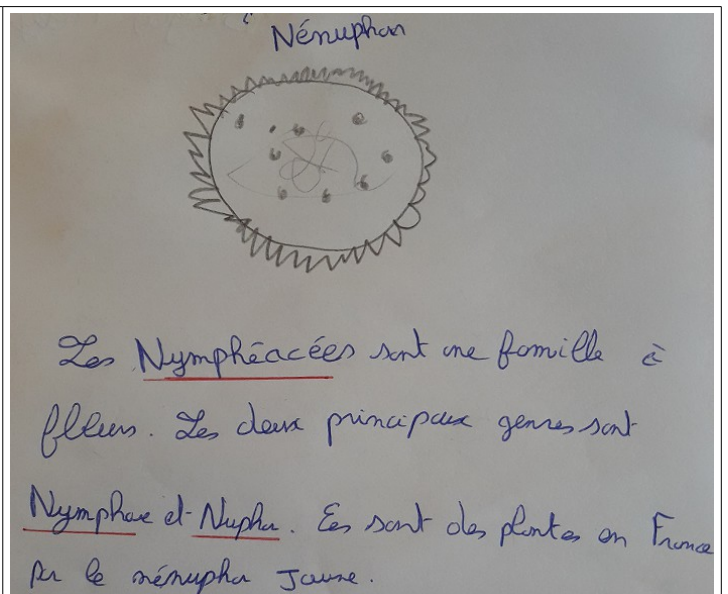 Nénuphar
Les Nymphéacées sont une famille à
fleurs. Les deux principaux genres sont
Nymphae et Nupha. Ces sont des plantes en France
par le nénupha Jaune.